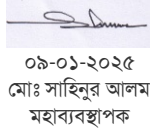 ০৯-০১-২০২৫
মোঃ সাহিনুর আলম
মহাব্যবস্থাপক